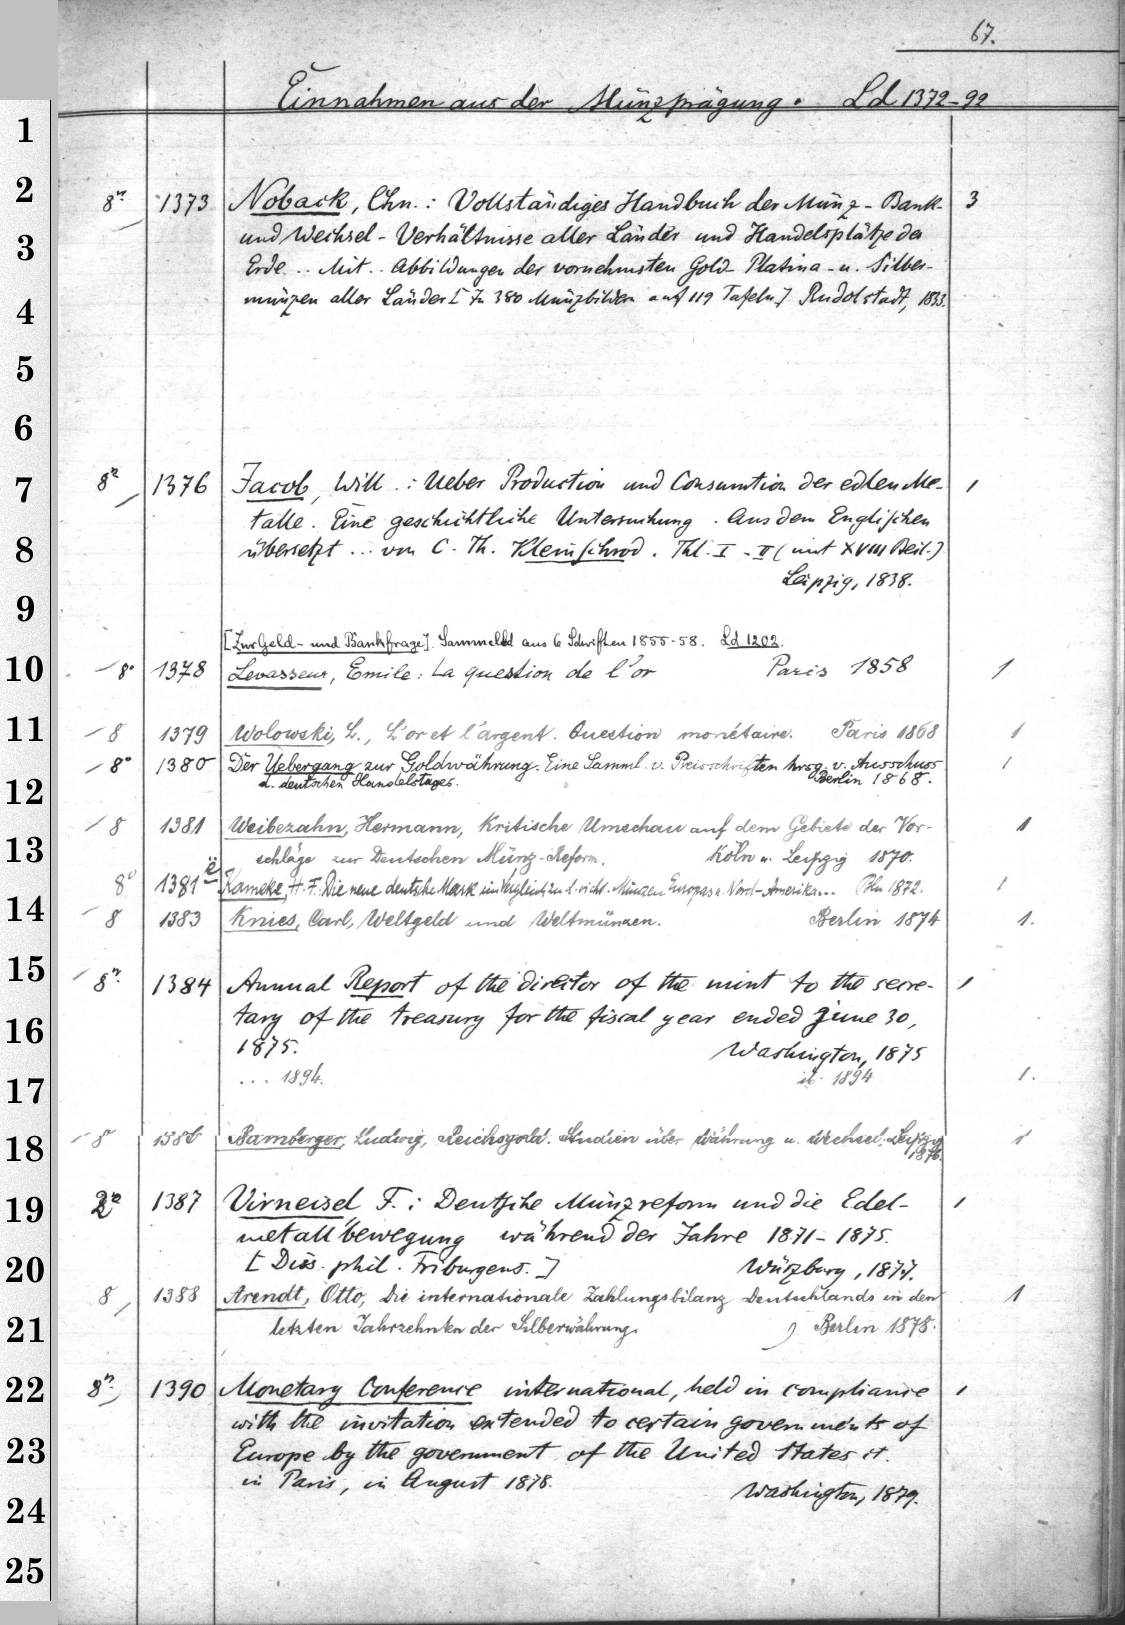 67.
Einnahmen aus der Münzprägung. Ld 1372-92
1
2
8° 1373 Noback, Chn.: Vollständiges Handbuch der Münz- Bank- 3
3
und Wechsel-Verhältnisse aller Länder und Handelsplätze der
Erde .. Mit .. Abbildungen der vornehmsten Gold- Platina- u. Silber-
4
münzen aller Länder [In 380 Münzbildern auf 119 Tafeln] Rudolstadt, 1833.
5
6
7
8° 1376 Jacob, Will.: Ueber Production und Consumtion der edlen Me- 1
talle. Eine geschichtliche Untersuchung. Aus dem Englischen
8
übersetzt ... von C. Th. Kleinschrod. Thl. I-II (mit XVIII Beil.)
Leipzig, 1838.
9
[Zur Geld- und Bankfrage]. Sammelbd aus 6 Schriften 1855-58. Ld 1202.
10
8° 1378 Levasseur, Emile: La question de l'or Paris 1858 1
11
8 1379 Wolowski, L., L'or et l'argent. Question monétaire. Paris 1868 1
8° 1380 Der Uebergang zur Goldwährung. Eine Samml. v. Preisschriften hrsg. v. Ausschuss 1
12
d. deutschen Handelstages. Berlin 1868.
8 1381 Weibezahn, Hermann, Kritische Umschau auf dem Gebiete der Vor- 1
13
schläge zur Deutschen Münz-Reform. Köln u. Leipzig 1870.
8° 1381ë Kameke, H. F. Die neue deutsche Mark im Vergleich zu d. Münzen Europas u. Nord-Amerikas... Bln 1872. 1
14
8 1383 Knies, Carl, Weltgeld und Weltmünzen. Berlin 1874 1.
15
8° 1384 Annual Report of the director of the mint to the secre- 1
tary of the treasury for the fiscal year ended june 30,
16
1875. Washington, 1875
... 1894. ib. 1894 1.
17
18
8 1386 Bamberger, Ludwig, Reichsgold. Studien über Währung u. Wechsel. Leipzig 1
1876.
19
2° 1387 Virneisel F.: Deutsche Münzreform und die Edel- 1
metallbewegung während der Jahre 1871-1875.
20
[Diss. phil. Friburgens.] Würzburg, 1877.
8 1388 Arendt, Otto, Die internationale Zahlungsbilanz Deutschlands in den 1
21
letzten Jahrzehnten der Silberwährung. Berlin 1878.
22
8° 1390 Monetary Conference international, held in compliance 1
with the invitation extended to certain governments of
23
Europe by the government of the United States it.
in Paris, in August 1878.
Washington, 1879.
24
25